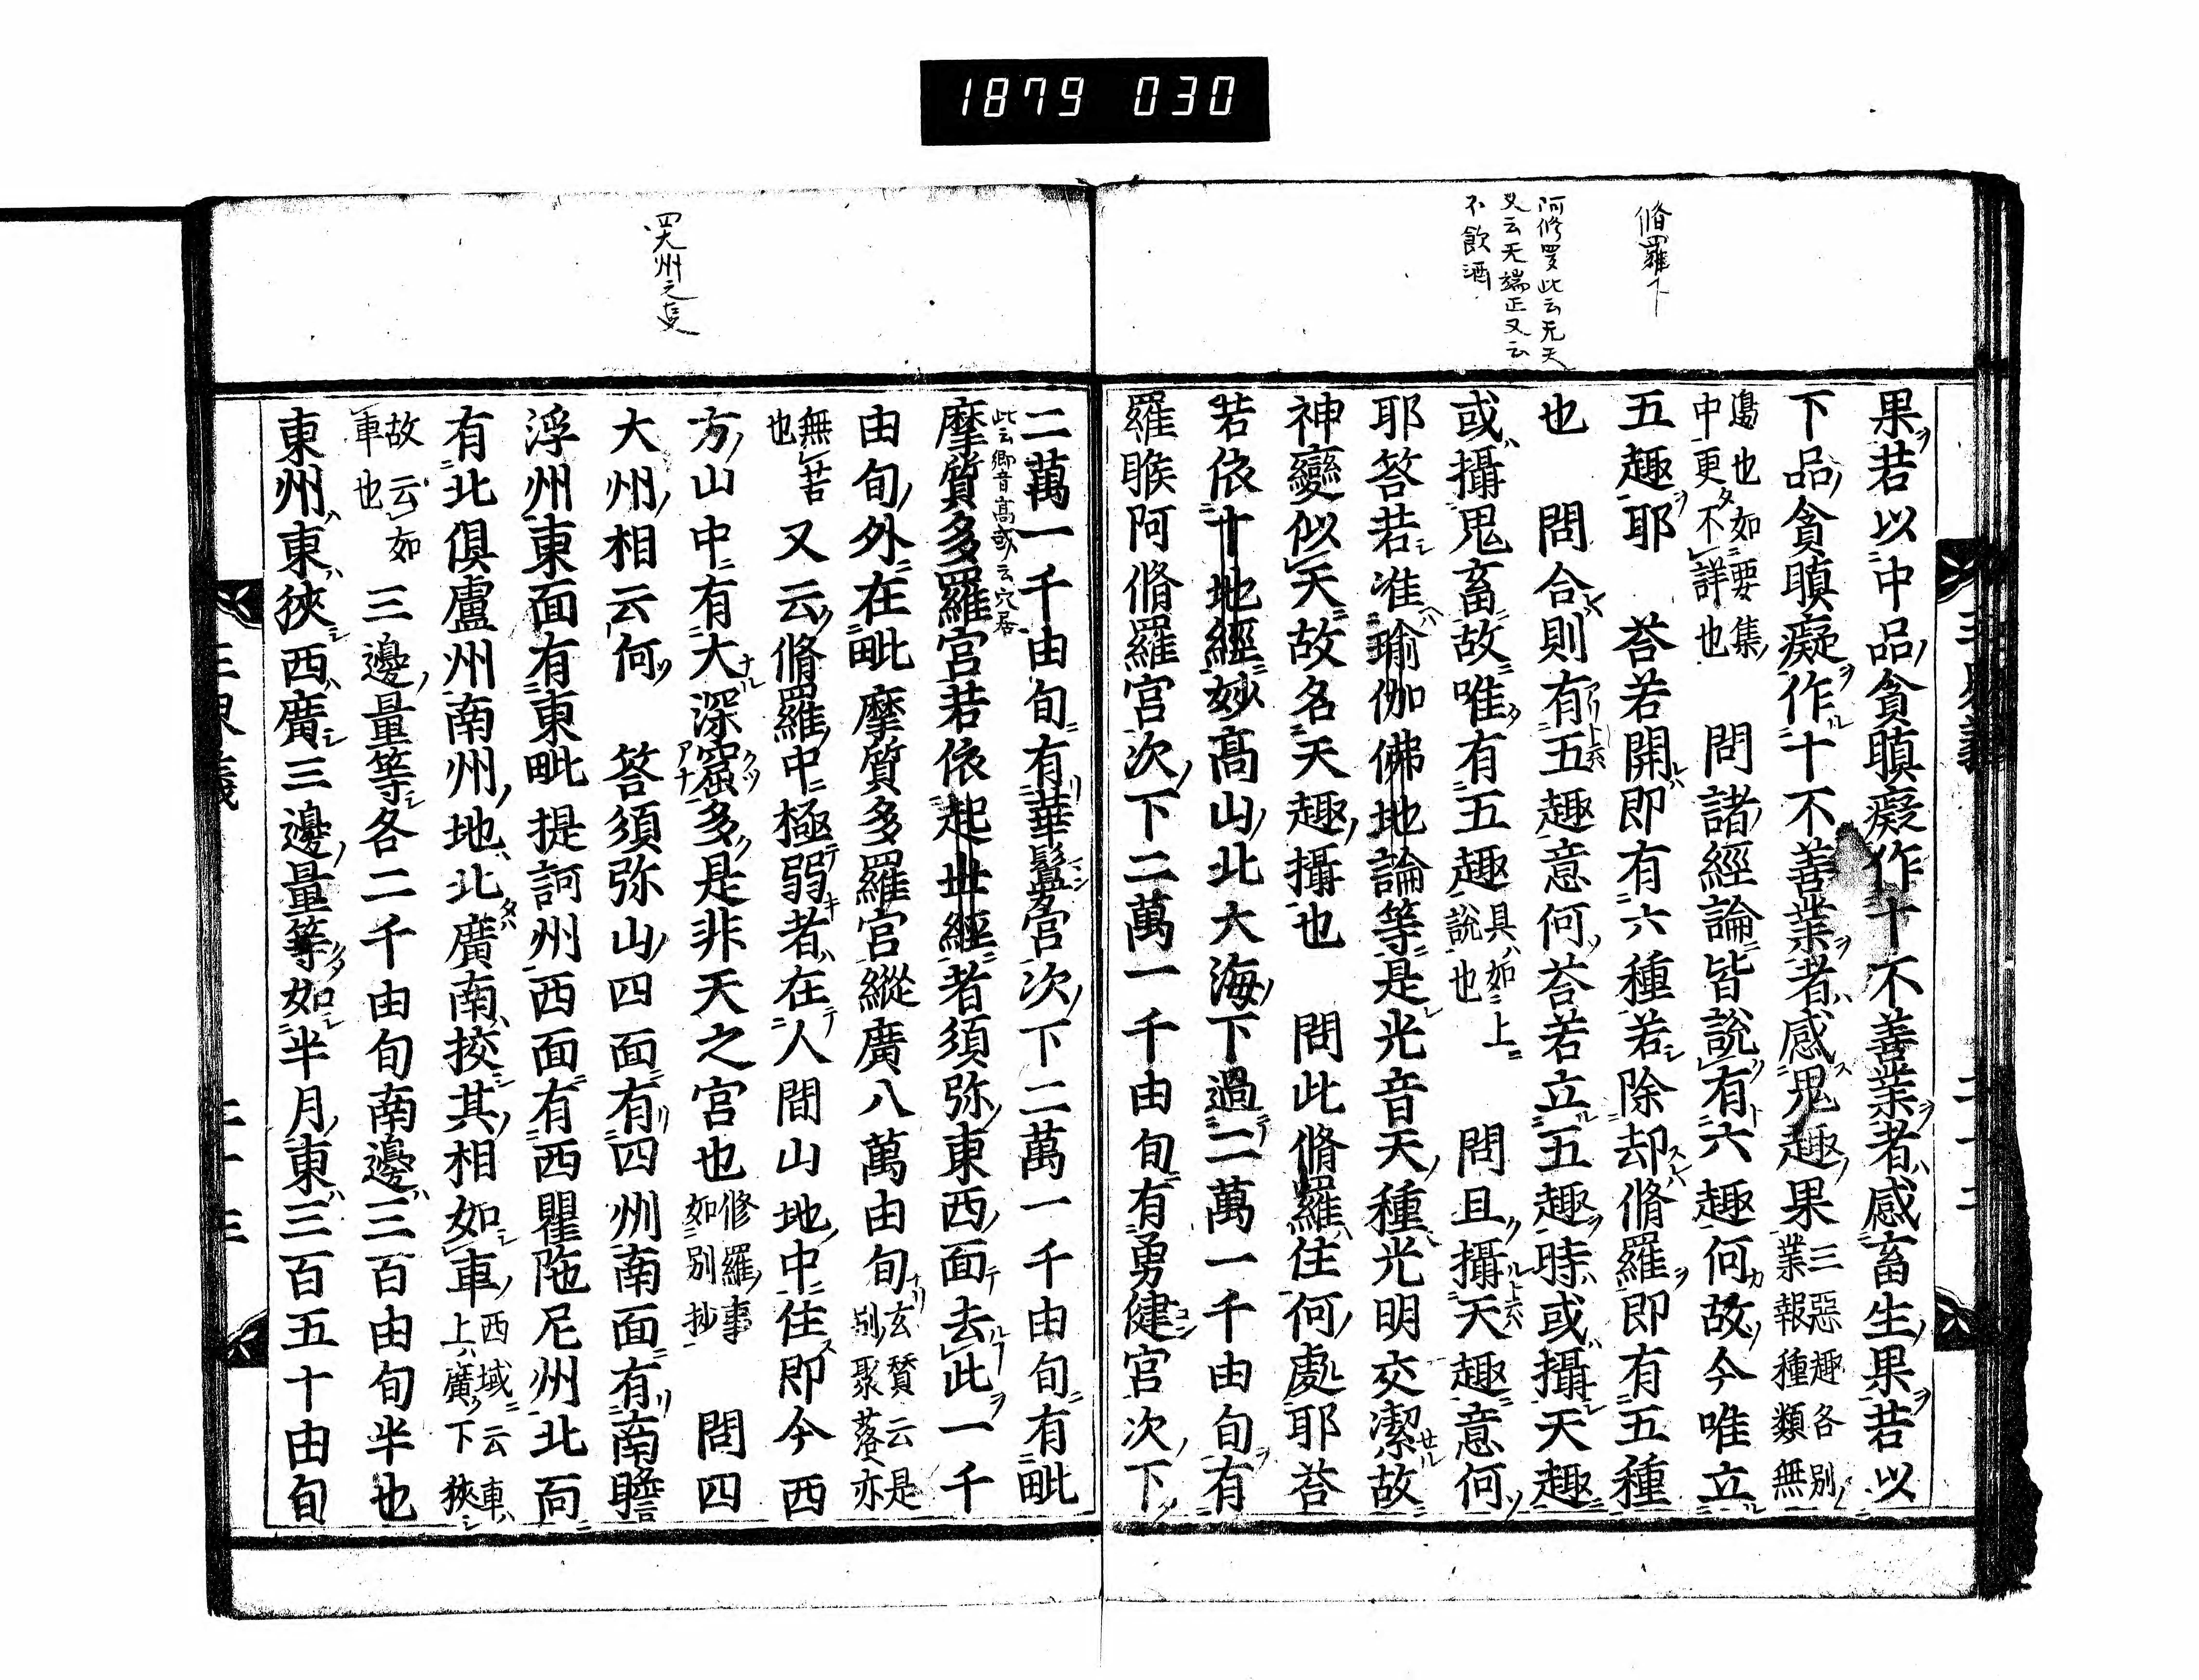 1879 030
脩羅下
阿修羅此云无天
又云无端正又云
不飲酒
果若以中品貪瞋癡作十不善業者感畜生果若以
下品貪瞋癡作十不善業者感鬼趣果三惡趣各別業報種類無
邊也如要集中更不詳也 問諸經論皆說有六趣何故今唯立
五趣耶 荅若開即有六種若除却脩羅即有五種
也 問合則有五趣意何荅若立五趣時或攝天趣
或攝鬼畜故唯有五趣具如上說也 問且攝天趣意何
耶荅若准瑜伽佛地論等是光音天種光明交潔故
神變似天故名天趣攝也 問此脩羅住何處耶荅
若依十地經妙高山北大海下過二萬一千由旬有
羅睺阿脩羅宮次下二萬一千由旬有勇健宮次下
二萬一千由旬有華鬘宮次下二萬一千由旬有毗
此云郷音高或云穴居
摩質多羅宮若依起世經者須弥東西面去此一千
由旬外在毗摩質多羅宮縱廣八萬由旬玄賛云是別聚落亦
無苦也 又云脩羅中極弱者在人間山地中住即今西
方山中有大深窟多是非天之宮也修羅事如別抄 問四
大州相云何 荅須弥山四面有四州南面有南瞻
浮州東面有東毗提訶州西面有西瞿陁尼州北面
有北俱盧州南州地北廣南挍其相如車西域云車上廣下狹
故云如車也 三邊量等各二千由旬南邊三百由旬半也
東州東狹西廣三邊量等如半月東三百五十由旬
四大州之叓